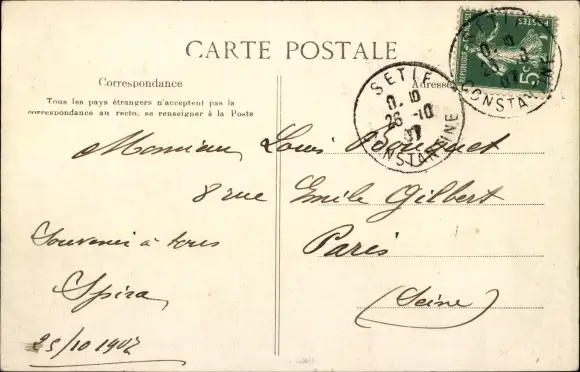 CARTE POSTALE
Correspondance
Adresse
Tous les pays étrangers n'acceptent pas la
correspondance au recto, se renseigner à la Poste
Monsieur Louis
8 rue Emile Gilbert
Paris
(Seine)
Souvenir à tous
Spira
25/10 1907
SETIF
26 -10
07
CONSTANTINE
SETIF
CONSTANTINE
POSTES
5c